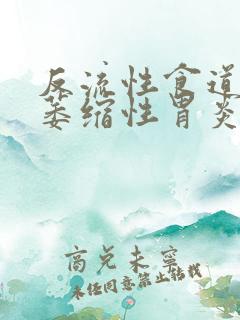 反流性食道
萎缩性胃炎
商兑未宁
未经同意禁止转载